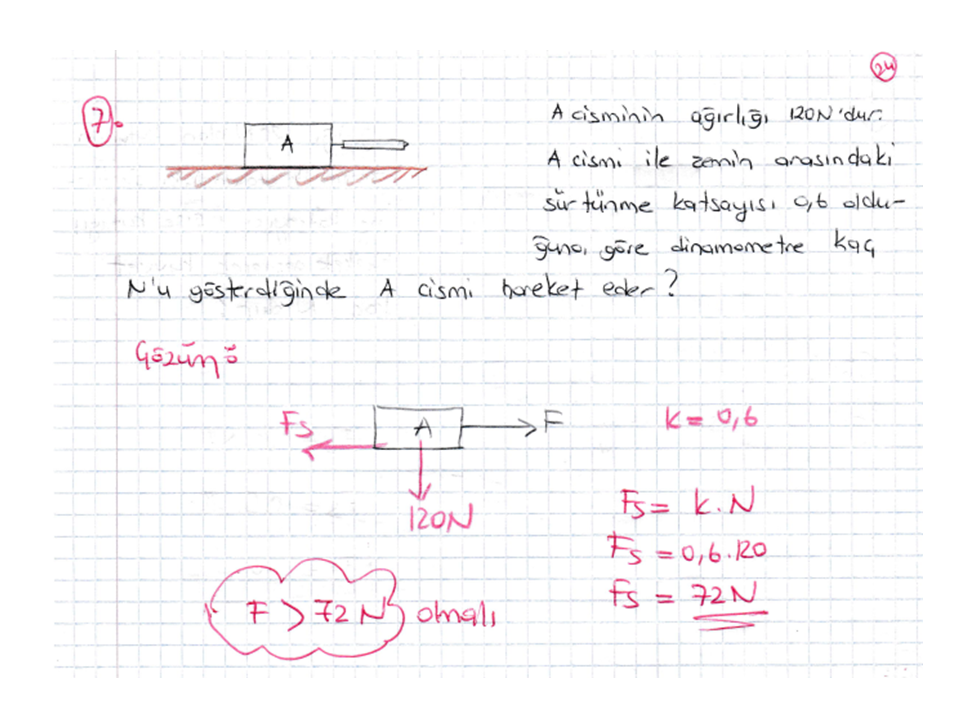 24
7.
A cisminin ağırlığı 120N'dur.
A
A cismi ile zemin arasındaki
sürtünme katsayısı 0,6 oldu-
ğuna göre dinamometre kaç
N'u gösterdiğinde A cismi hareket eder?
Çözüm:
Fs A F
k = 0,6
120N
Fs = k.N
Fs = 0,6.120
fs = 72N
F > 72 N olmalı